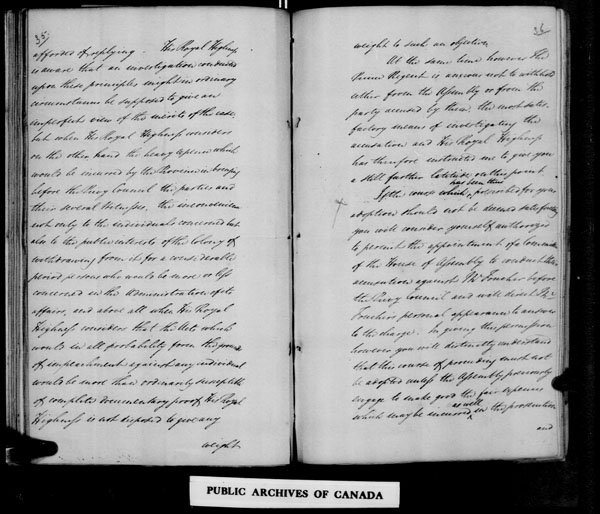 35
afforded of replying. His Royal Highness
is aware that an investigation conducted
upon these principles might in ordinary
circumstances be supposed to give an
imperfect view of the merits of the case,
but when His Royal Highness considers
on the other hand the heavy expence which
would be incurred by the Province in bringing
before the Privy Council the parties and
their several witnesses, the inconvenience
not only to the individuals concerned but
also to the public interests of the Colony of
withdrawing from it for a considerable
period persons who would be more or less
concerned in the administration of its
affairs, and above all when His Royal
Highness considers that the acts which
would in all probability form the ground
of impeachment against any individual
would be more than ordinarily susceptible
of complete documentary proof His Royal
Highness is not disposed to give any
weight
36
weight to such an objection
At the same time however the
Prince Regent is anxious not to withhold
either from the Assembly or from the
party accused by them, the most satis-
factory means of investigating the
accusation and His Royal Highness
has therefore instructed me to give you
a still further latitude on this point.
If the course which has been thus prescribed for your
adoption should not be deemed satisfactory
you will consider yourself authorized
to permit the appointment of a Committee
of the House of Assembly to conduct the
accusation against Mr. Foucher before
the Privy Council and will direct Mr.
Foucher's personal appearance to answer
to the charge. In giving this permission
however you will distinctly understand
that this course of proceeding must not
be adopted unless the Assembly previously
engage to make good the fair expenses
which may be incurred as well in the prosecution
and
PUBLIC ARCHIVES OF CANADA